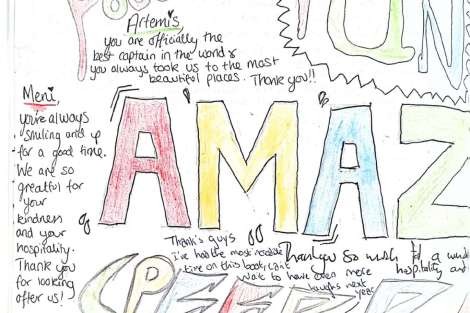 FUN
Artemis,
you are officially the
best captain in the world &
you always took us to the most
beautiful places. Thank you!!
Meni,
you're always
smiling and up
for a good time.
We are so
greatful for
your
kindness
and your
hospitality.
Thank you
for looking
after us!
AMAZ
Thank's guys
i've had the most
time on this boat, can't
wait to have even more
laughs next
year
Thankyou so much a
hospitality and